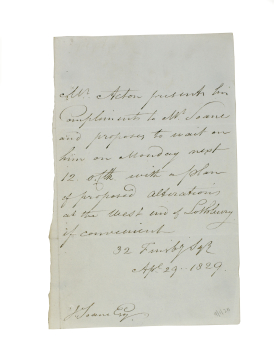 Mr. Acton presents his
Compliments to Mr. Soane
and proposes to wait on
him on Monday next
12 with a plan
of proposed alterations
at the West end of Lothbury
if convenient
32 Finsby Sqr
Apl. 29. 1829.
J Soane Esq.